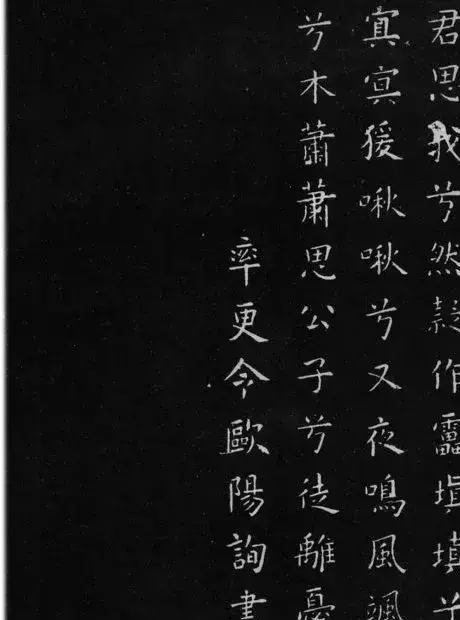 君思我兮然疑作靁填填兮
㝠㝠猨啾啾兮又夜鳴風颯
兮木蕭蕭思公子兮徒離憂
率更令歐陽詢書